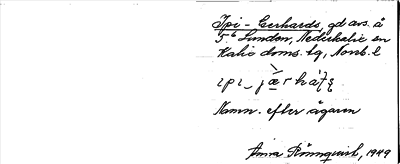 Ipi-Gerhards, gd avs. å
5⁶ Sunden, Nederkalix sn
Kalix doms. tg, Norrb. l
Namn. efter ägaren
Anna Rönnqvist, 1949